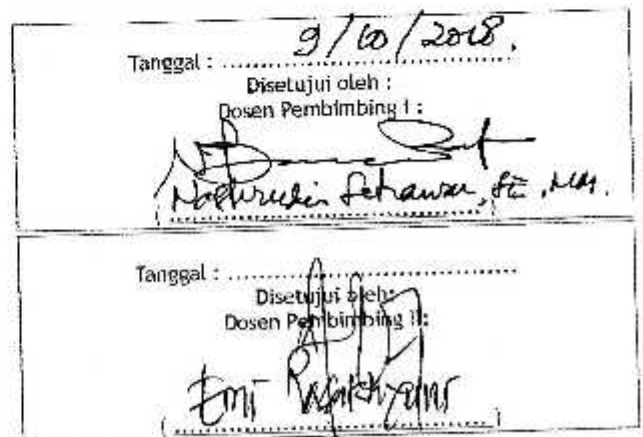 Tanggal : 9/10/2018.
Disetujui oleh :
Dosen Pembimbing I :
Nashrudin Setiawan, SE, MM.
Tanggal : ........................
Disetujui oleh:
Dosen Pembimbing II:
Emi